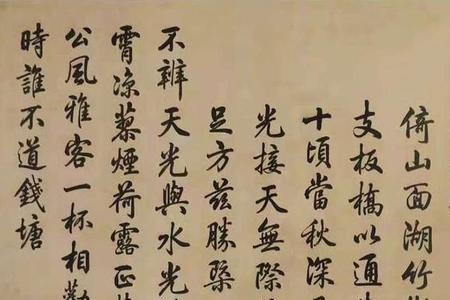 倚山面湖竹
支板橋以通
十頃當秋深
光接天無際
足方茲勝槩
不辨天光與水光
霄凉藜煙荷露正
公風雅客一杯相勸
時誰不道錢塘